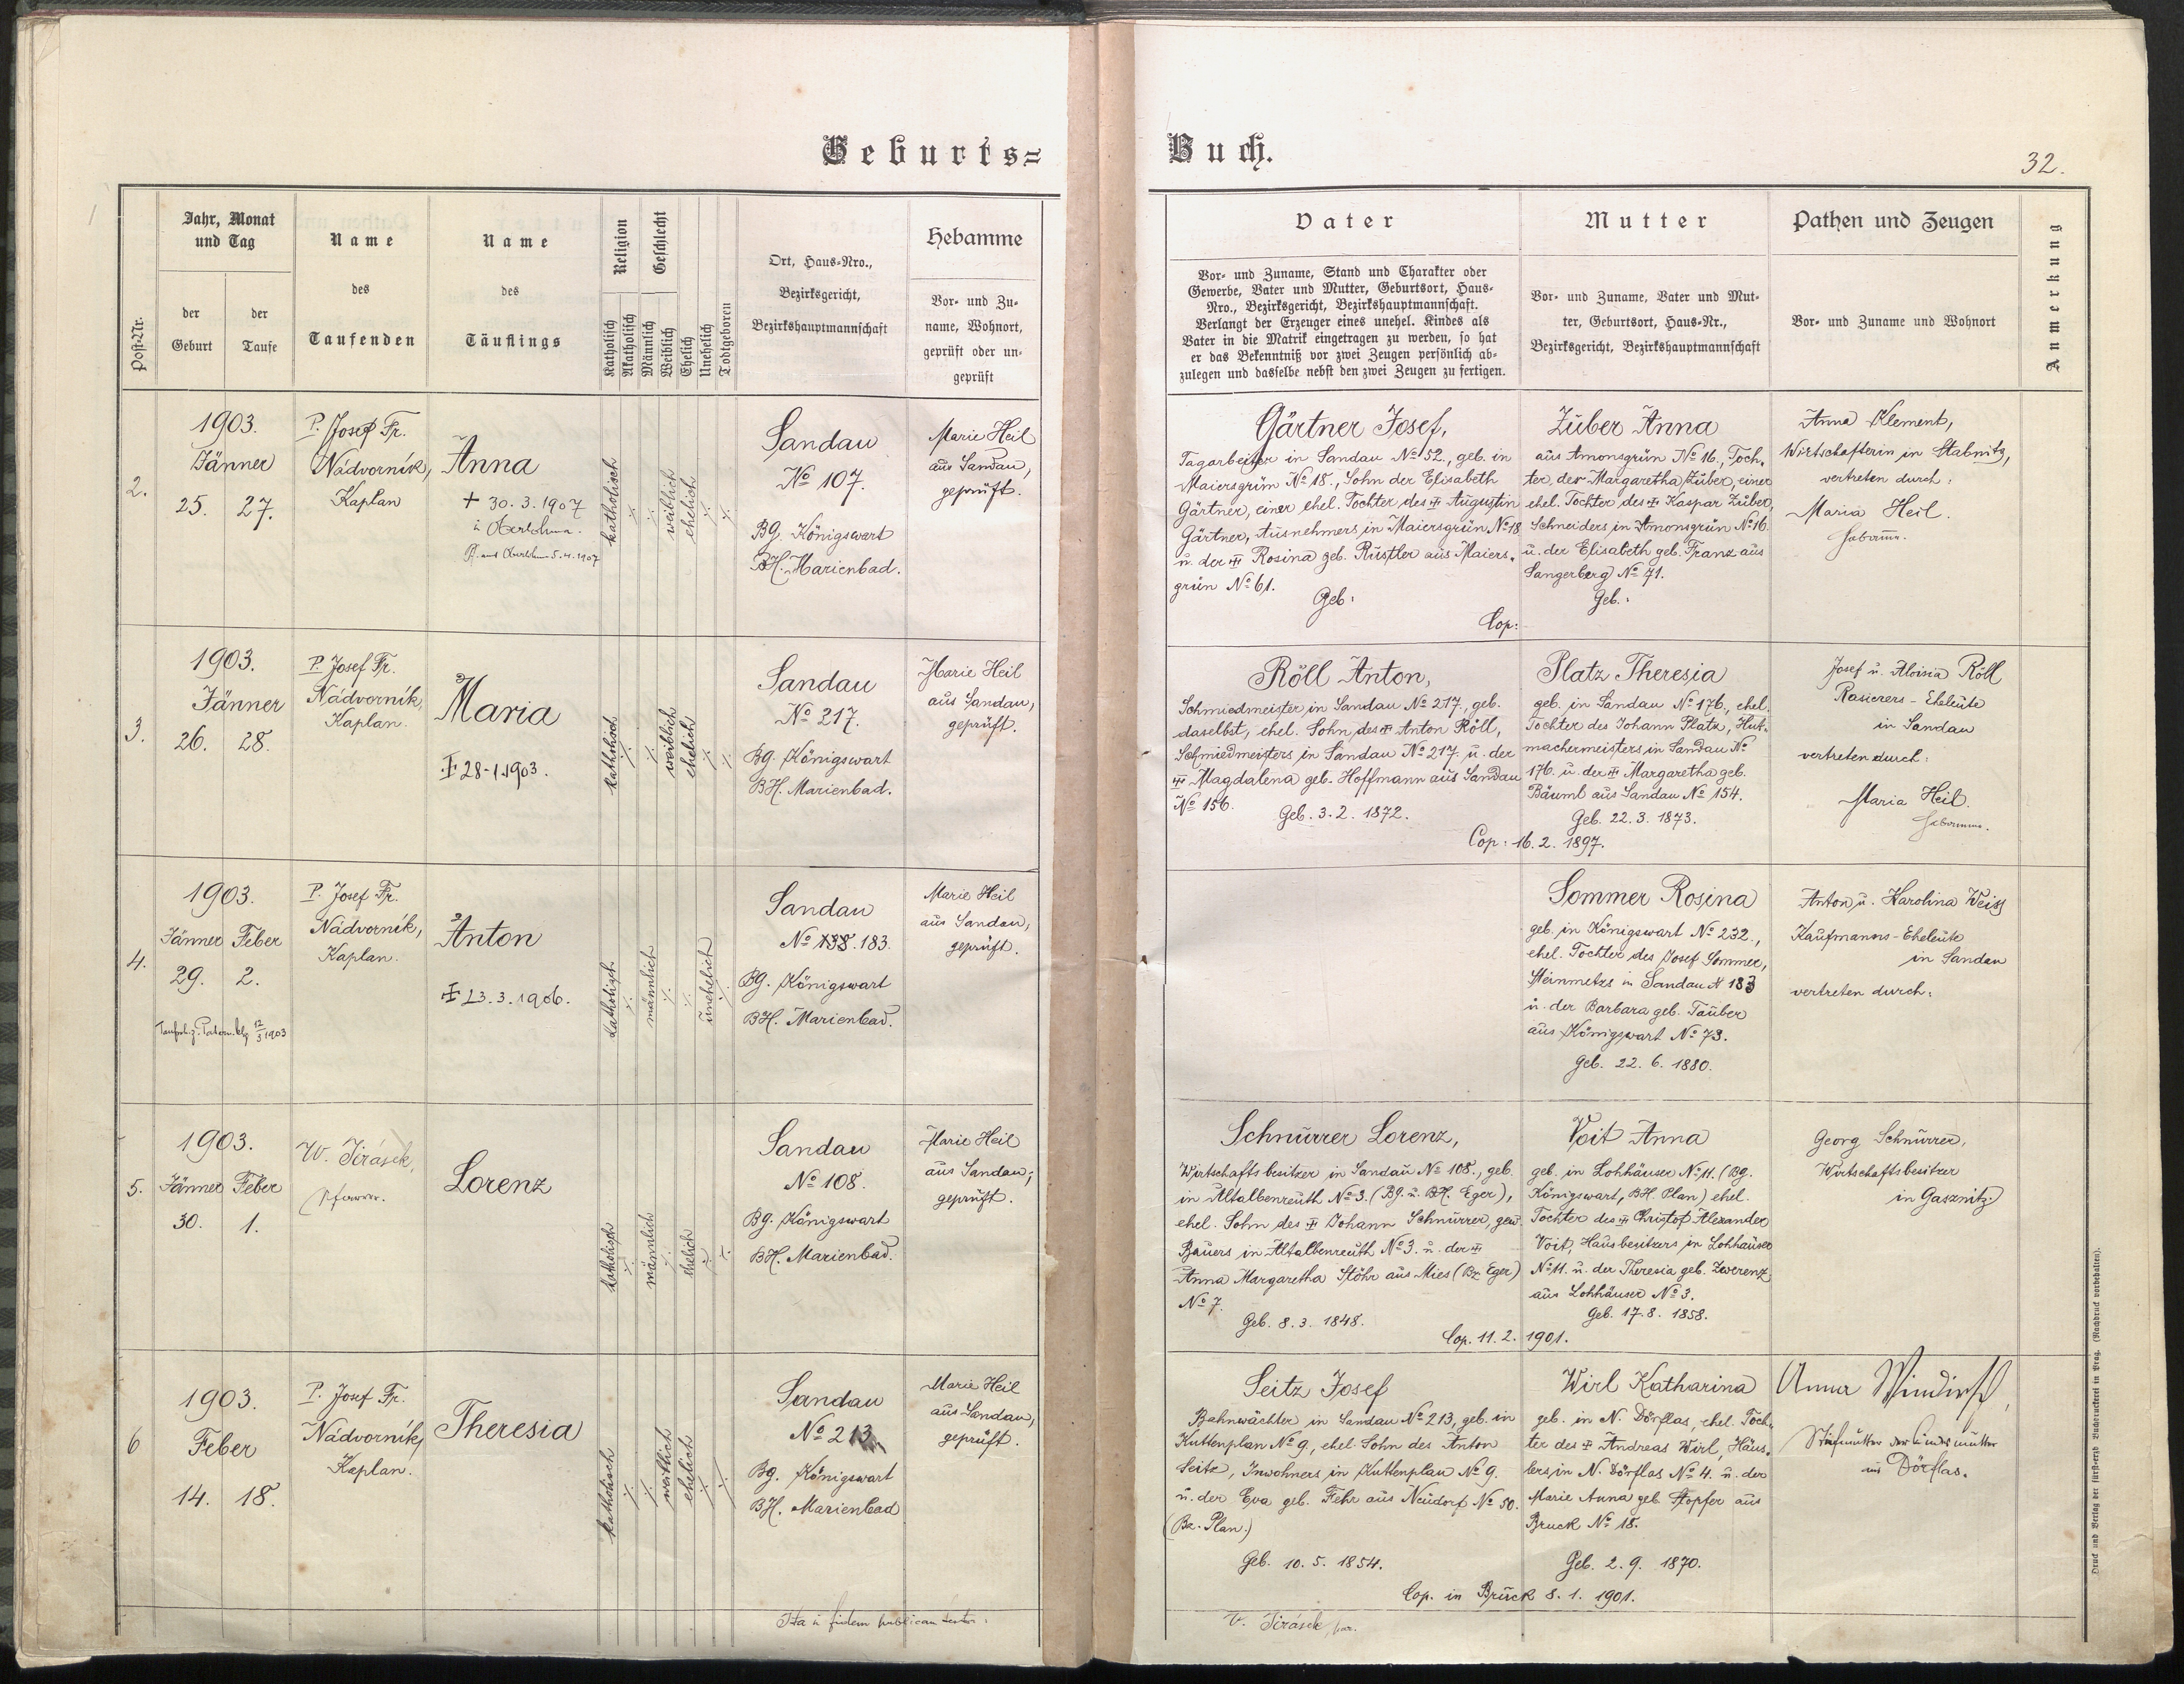 Geburts=
Buch.
32.
Post-Nr.
Jahr, Monat
und Tag
der
Geburt
der
Taufe
Name
des
Taufenden
Name
des
Täuflings
Religion
Geschlecht
Katholisch
Akatholisch
Männlich
Weiblich
Ehelich
Unehelich
Todtgeboren
Ort, Haus-Nro.,
Bezirksgericht,
Bezirkshauptmannschaft
Hebamme
Vor- und Zu-
name, Wohnort,
geprüft oder un-
geprüft
Vater
Vor- und Zuname, Stand und Charakter oder
Gewerbe, Vater und Mutter, Geburtsort, Haus-
Nro., Bezirksgericht, Bezirkshauptmannschaft.
Verlangt der Erzeuger eines unehel. Kindes als
Vater in die Matrik eingetragen zu werden, so hat
er das Bekenntniß vor zwei Zeugen persönlich ab-
zulegen und dasselbe nebst den zwei Zeugen zu fertigen.
Mutter
Vor- und Zuname, Vater und Mut-
ter, Geburtsort, Haus-Nr.,
Bezirksgericht, Bezirkshauptmannschaft
Pathen und Zeugen
Vor- und Zuname und Wohnort
Anmerkung
2.
1903.
Jänner
25. 27.
P. Josef Fr.
Nádvorník,
Kaplan
Anna
+ 30. 3. 1907
in Oberlohma.
aus Oberlohma 5. 4. 1907
katholisch
weiblich
ehelich
Sandau
No 107.
BG. Königswart
BH. Marienbad.
Marie Heil
aus Sandau,
geprüft.
Gärtner Josef,
Tagarbeiter in Sandau No 52., geb. in
Maiersgrün No 18., Sohn der Elisabeth
Gärtner, einer ehel. Tochter des Augustin
Gärtner, Ausnehmers in Maiersgrün No 18
u. der Rosina geb. Rustler aus Maiers-
grün No 61.
Geb:
Cop:
Zuber Anna
aus Amonsgrün No 16., Toch-
ter der Margaretha Zuber, einer
ehel. Tochter des Kaspar Zuber,
Schneiders in Amonsgrün No 16.
u. der Elisabeth geb. Franz aus
Sangerberg No 71.
Geb.:
Anna Klement,
Wirtschafterin in Stabnitz,
vertreten durch:
Maria Heil.
Hebamme.
3.
1903.
Jänner
26. 28.
P. Josef Fr.
Nádvorník,
Kaplan.
Maria
28-1.1903.
katholisch
weiblich
ehelich
Sandau
No 217.
Bg. Königswart
BH. Marienbad.
Marie Heil
aus Sandau,
geprüft.
Röll Anton,
Schmiedmeister in Sandau No 217., geb.
daselbst, ehel. Sohn des Anton Röll,
Schmiedmeisters in Sandau No 217. u. der
Magdalena geb. Hoffmann aus Sandau
No 156.
Geb. 3. 2. 1872.
Cop: 16. 2. 1897.
Platz Theresia
geb. in Sandau No 176., ehel.
Tochter des Johann Platz, Hut-
machermeisters in Sandau No
176. u. der Margaretha geb.
Bäuml aus Sandau No 154.
Geb. 22. 3. 1873.
Josef u. Aloisia Röll
Rasierers-Eheleute
in Sandau
vertreten durch:
Maria Heil.
Hebamme.
4.
1903.
Jänner Feber
29. 2.
12/3 1903
P. Josef Fr.
Nádvorník,
Kaplan.
Anton
13. 3. 1906.
katholisch
männlich
unehelich
Sandau
No 138. 183.
BG. Königswart
BH. Marienbad.
Marie Heil
aus Sandau,
geprüft.
Sommer Rosina
geb. in Königswart No 232.,
ehel. Tochter des Josef Sommer,
Steinmetzs in Sandau N 183
u. der Barbara geb. Tauber
aus Königswart No 73.
Geb. 22. 6. 1880.
Anton u. Karolina Weiss
Kaufmanns-Eheleute
in Sandau
vertreten durch:
5.
1903.
Jänner Feber
30. 1.
W. Jirásek,
Pfarrer.
Lorenz
katholisch
männlich
ehelich
Sandau
No 108.
Bg. Königswart
BH. Marienbad.
Marie Heil
aus Sandau,
geprüft.
Schnurrer Lorenz,
Wirtschaftsbesitzer in Sandau No 108., geb.
in Altalbenreuth No 3. (Bg. u. BH. Eger),
ehel. Sohn des Johann Schnurrer, gew.
Bauers in Altalbenreuth No 3. u. der
Anna Margaretha Stöhr aus Mies (Bz Eger)
No 7.
Geb. 8. 3. 1848.
Cop. 11. 2. 1901.
Voit Anna
geb. in Lohhäuser No 11. (Bg.
Königswart, BH Plan) ehel.
Tochter des Christof Alexander
Voit, Hausbesitzers in Lohhäuser
No 11. u. der Theresia geb. Zwerenz
aus Lohhäuser No 3.
Geb. 17. 8. 1858.
Georg Schnurrer,
Wirtschaftsbesitzer
in Gassnitz.
6
1903.
Feber
14. 18.
P. Josef Fr.
Nádvorník,
Kaplan.
Theresia
katholisch
weiblich
ehelich
Sandau
No 213.
Bg. Königswart
BH. Marienbad
Marie Heil
aus Sandau,
geprüft.
Seitz Josef
Bahnwächter in Sandau No 213, geb. in
Kuttenplan No 9, ehel. Sohn des Anton
Seitz, Inwohners in Kuttenplan No 9.
u. der Eva geb. Fehr aus Neudorf No 50.
(Bz. Plan.)
Geb. 10. 5. 1854.
Cop. in Bruck 8. 1. 1901.
Wirl Katharina
geb. in N. Dörflas, ehel. Toch-
ter des Andreas Wirl, Häus-
lers in N. Dörflas No 4. u. der
Marie Anna geb. Stopfer aus
Bruck No 18.
Geb. 2. 9. 1870.
Anna
Stiefmutter der Kindesmutter
aus Dörflas.
Ita in fidem publicam testor:
V. Jirásek, par.
Druck und Verlag der fürst-erzb Buchdruckerei in Prag. (Nachdruck vorbehalten).